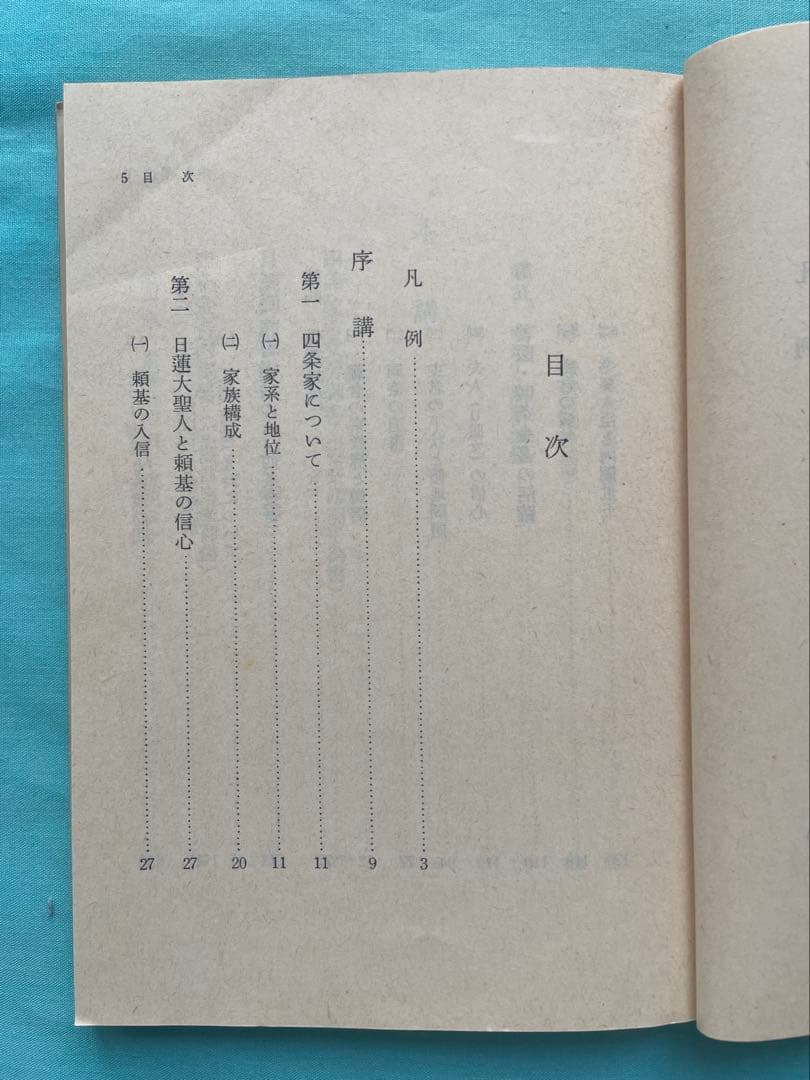 5 目 次
目 次
凡 例 3
序 講 9
第一 四条家について 11
㈠ 家系と地位 11
㈡ 家族構成 20
第二 日蓮大聖人と頼基の信心 27
㈠ 頼基の入信 27